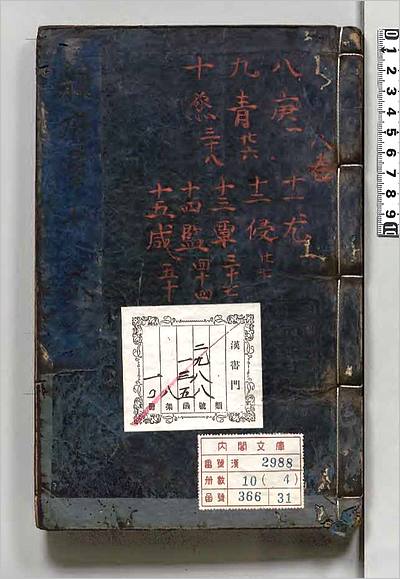 八庚一
九青廿六
十蒸三十八
十一尤
十二侵廿七
十三覃三十七
十四監四十四
十五咸五十
漢書門
類
二九八八號
一三五函
八架
冊
内閣文庫
番號 漢 2988
冊數 10(4)
函號 366 31
0 1 2 3 4 5 6 7 8 9 10